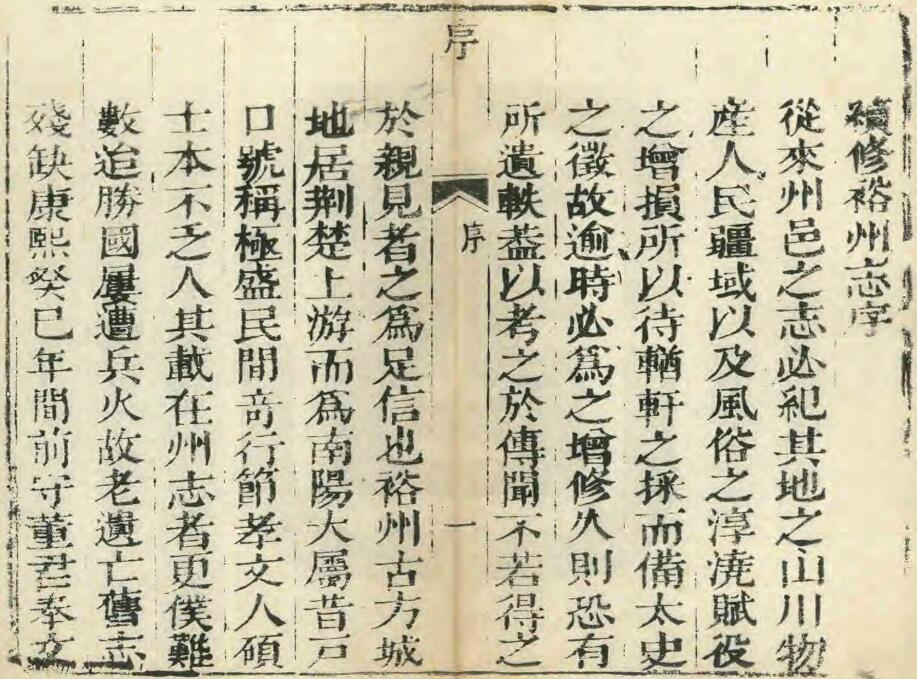 續修裕州志序
從來州邑之志必紀其地之山川物
產人民疆域以及風俗之淳澆賦役
之增損所以待輶軒之採而備太史
之徵故逾時必為之增修久則恐有
所遺軼葢以考之於傳聞不若得之
序
序
一
於親見者之為足信也裕州古方城
地居荆楚上游而為南陽大屬昔戸
口號稱極盛民間奇行節孝文人碩
士本不乏人其載在州志者更僕難
數迨勝國屢遭兵火故老遺亡舊志
殘缺康熙癸巳年間前守董君奉文